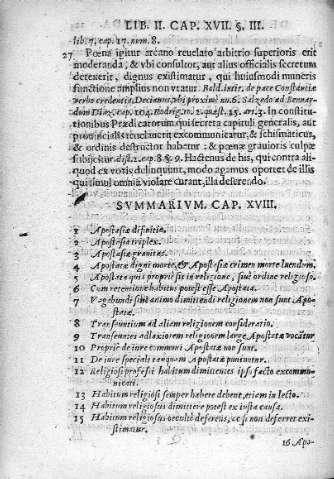 LIB. II. CAP. XVII. §. III.
lib. 7. cap. 17. num. 8.
27 Pœna igitur arcano reuelato arbitrio superioris erit
moderanda, & vbi consultor, aut alius officialis secretum
detexerit, dignus existimatur, qui huiusmodi muneris
functione amplius non vtatur. Bald. in tr. de pace Constantiæ
verbo credentia, Decianus vbi proximè nu. 6. Salzedo ad Bernar-
dum Diaz, cap. 104. Rodrig. to. 2. quæst. 15. art. 3. In constitu-
tionibus Prædicatorum qui secreta capituli generalis, aut
prouincialis reuelauerit excommunicatur, & schismaticus,
& ordinis destructor habetur : & pœnæ grauioris culpæ
subijcitur dist. 2. cap. 8. §. 9. Hactenus de his, qui contra ali-
quod ex votis delinquunt, modo agamus oportet de illis
qui simul omnia violare curant, illa deserendo.
SVMMARIVM. CAP. XVIII.
1 Apostasiæ difinitio.
2 Apostasia triplex.
3 Apostasiæ grauitas.
4 Apostatæ digni morte, & Apostasiæ crimen morte luendum.
5 Apostatæ qui propriè sit in religione, siue ordine religioso.
6 Cum retentione habitus potest esse Apostata.
7 Vagabundi sine animo dimittendi religionem non sunt Apo-
statæ.
8 Transeuntium ad aliam religionem consideratio.
9 Transeuntes ad laxiorem religionem largè Apostatæ vocantur.
10 Propriè de iure communi Apostatæ non sunt.
11 De iure speciali tanquam Apostatæ puniuntur.
12 Religiosi professi habitum dimittentes ipso facto excommu-
nicati.
13 Habitum religiosi semper habere debent, etiam in lecto.
14 Habitum religiosus dimittere potest ex iusta causa.
15 Habitum religiosus occultè deferens, ac si non deferret exi-
stimatur.
16 Apo-